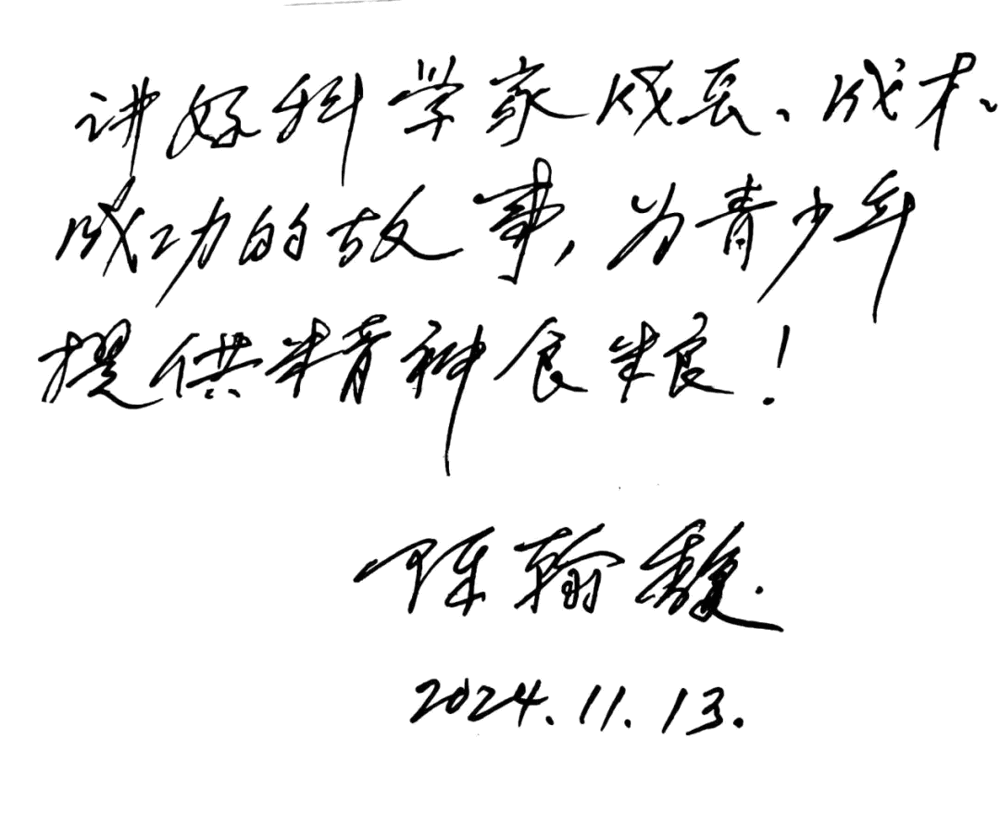 讲好科学家成长、成才、
成功的故事,为青少年
提供精神食粮!
陈翰馥.
2024.11.13.